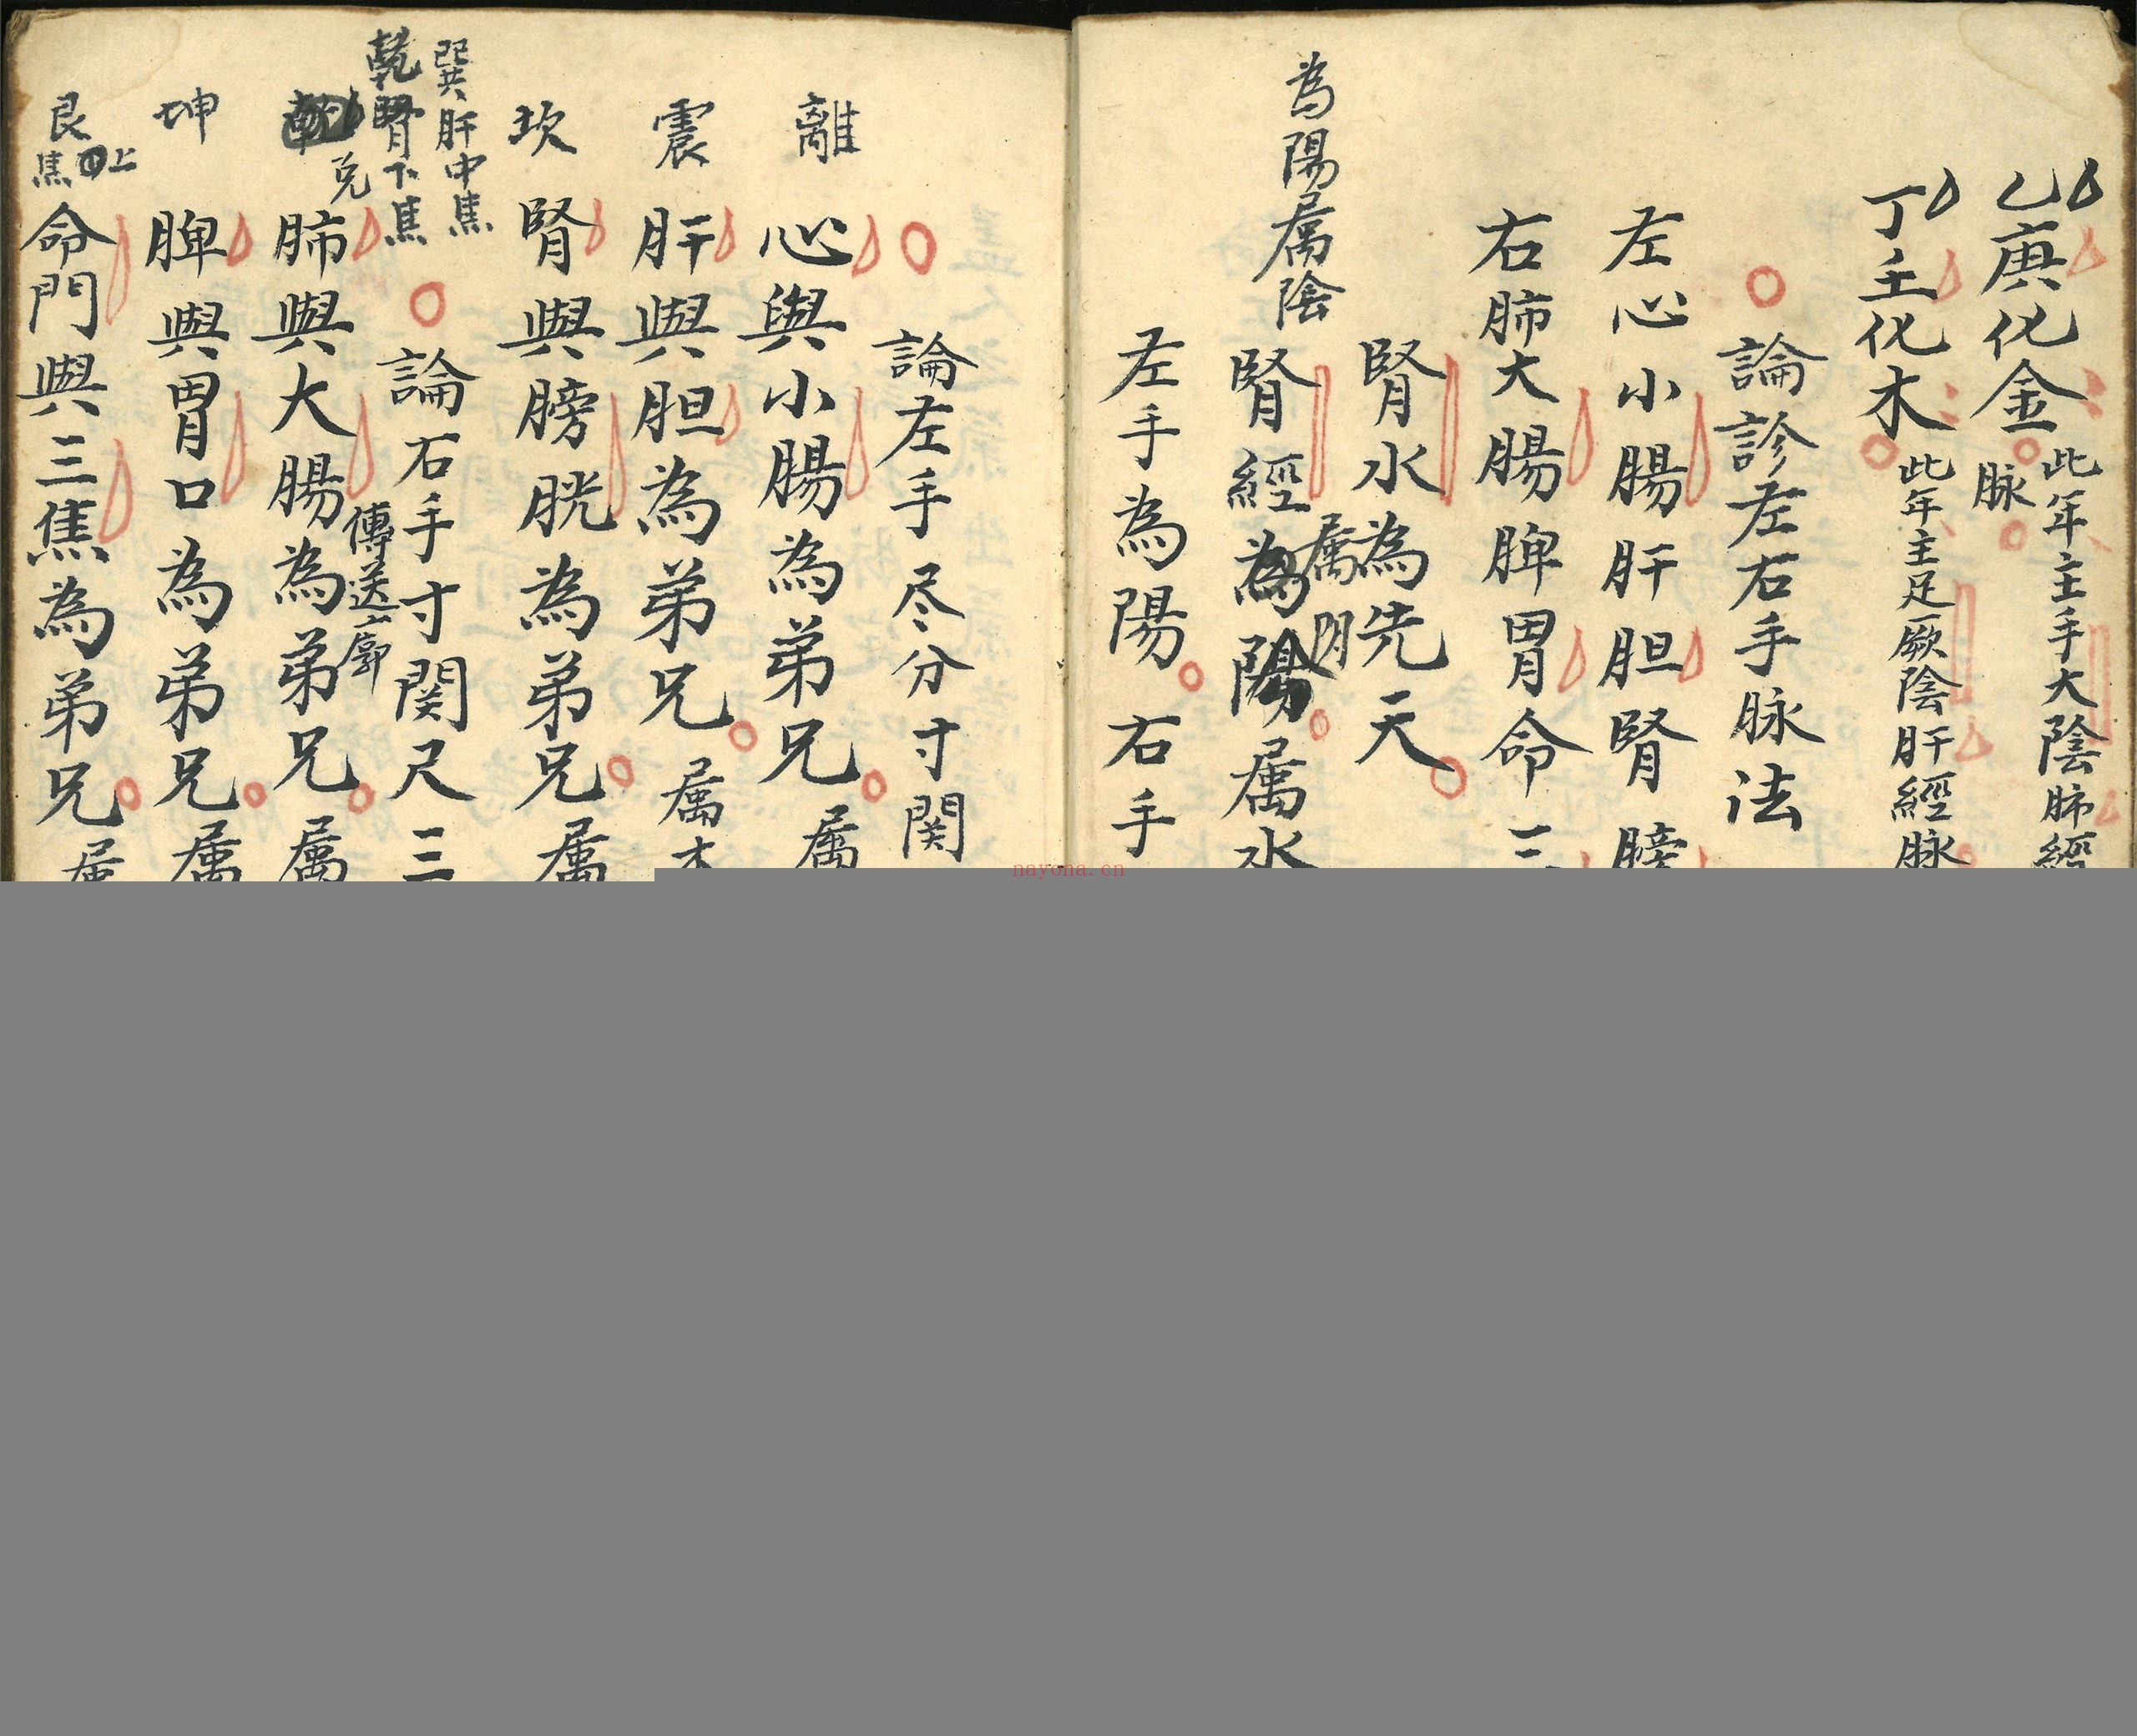 乙庚化金
此年主手大陰肺經
脉
丁壬化木
此年主足厥陰肝經脉
論診左右手脉法
左心小腸肝胆腎膀
右肺大腸脾胃命三
腎水為先天
属
腎經為陽属水
為陽属陰
左手為陽右手
論左手尽分寸関
離
心與小腸為弟兄属
震
肝與胆為弟兄属木
坎
腎與膀胱為弟兄属
巽肝中焦
乾腎下焦
論右手寸関尺三
兌
肺與大腸為弟兄属
傳送廓
坤
脾與胃口為弟兄属
艮
上
焦
命門與三焦為弟兄属
nayona.cn